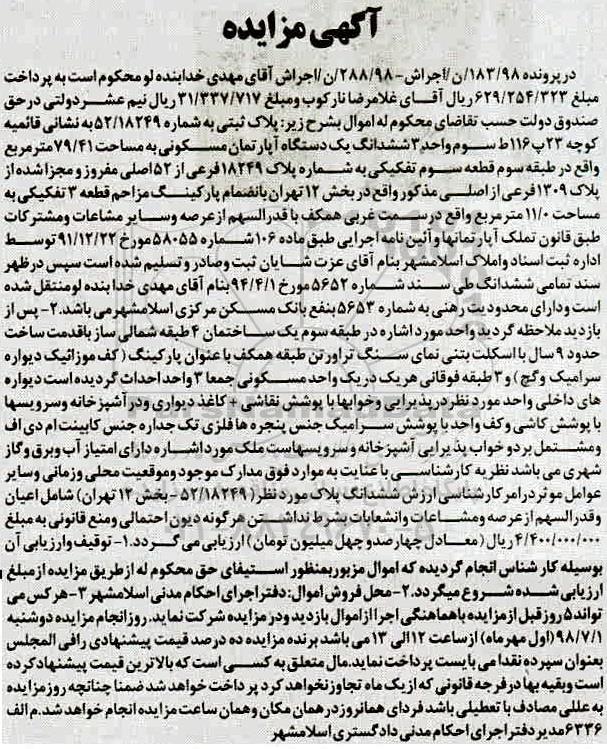 آگهی مزایده
در پرونده ۱۸۳/۹۸/ن/اجراش - ۲۸۸/۹۸/ن/اجراش آقای مهدی خدابنده لو محکوم است به پرداخت
مبلغ ۶۲۹/۲۵۴/۳۲۳ ریال آقای غلامرضا نارکوب ومبلغ ۳۱/۳۳۷/۷۱۷ ریال نیم عشر دولتی در حق
صندوق دولت حسب تقاضای محکوم له اموال بشرح زیر: پلاک ثبتی به شماره ۵۲/۱۸۲۴۹ به نشانی قائمیه
کوچه ۲۳ پ ۱۱۶ ط سوم واحد ۳ ششدانگ یک دستگاه آپارتمان مسکونی به مساحت ۷۹/۴۱ مترمربع
واقع در طبقه سوم قطعه سوم تفکیکی به شماره پلاک ۱۸۲۴۹ فرعی از ۵۲ اصلی مفروز و مجزا شده از
پلاک ۱۳۰۹ فرعی از اصلی مذکور واقع در بخش ۱۲ تهران بانضمام پارکینگ مزاحم قطعه ۳ تفکیکی به
مساحت ۱۱/۰ متر مربع واقع در سمت غربی همکف با قدرالسهم از عرصه وسایر مشاعات ومشترکات
طبق قانون تملک آپارتمانها و آئین نامه اجرایی طبق ماده ۱۰۶ شماره ۵۸۰۵۵ مورخ ۹۱/۱۲/۲۲ توسط
اداره ثبت اسناد واملاک اسلامشهر بنام آقای عزت شایان ثبت وصادر و تسلیم شده است سپس در ظهر
سند تمامی ششدانگ طی سند شماره ۵۶۵۲ مورخ ۹۴/۴/۱ بنام آقای مهدی خدابنده لو منتقل شده
است ودارای محدودیت رهنی به شماره ۵۶۵۳ بنفع بانک مسکن مرکزی اسلامشهر می باشد. ۲- پس از
بازدید ملاحظه گردید واحد مورد اشاره در طبقه سوم یک ساختمان ۴ طبقه شمالی ساز باقدمت ساخت
حدود ۹ سال با اسکلت بتنی نمای سنگ تراورتن طبقه همکف با عنوان پارکینگ ( کف موزائیک دیواره
سرامیک و گچ ) و ۳ طبقه فوقانی هر یک در یک واحد مسکونی جمعا ۳ واحد احداث گردیده است دیواره
های داخلی واحد مورد نظر در پذیرایی و خوابها با پوشش نقاشی + کاغذ دیواری ودر آشپزخانه وسرویسها
با پوشش کاشی و کف واحد با پوشش سرامیک جنس پنجره ها فلزی تک جداره جنس کابینت ام دی اف
ومشتمل بر دو خواب پذیرایی آشپزخانه و سرویسهاست ملک مورد اشاره دارای امتیاز آب وبرق وگاز
شهری می باشد نظر به کارشناسی با عنایت به موارد فوق مدارک موجود وموقعیت محلی وزمانی وسایر
عوامل موثر در امر کارشناسی ارزش ششدانگ پلاک مورد نظر (۵۲/۱۸۲۴۹ - بخش ۱۲ تهران) شامل اعیان
وقدرالسهم از عرصه ومشاعات وانشعابات بشرط نداشتن هرگونه دیون احتمالی ومنع قانونی به مبلغ
۴/۴۰۰/۰۰۰/۰۰۰ ریال (معادل چهارصدو چهل میلیون تومان ) ارزیابی می گردد. ۱- توقیف وارزیابی آن
بوسیله کارشناس انجام گردیده که اموال مزبور بمنظور استیفای حق محکوم له از طریق مزایده از مبلغ
ارزیابی شده شروع میگردد. ۲- محل فروش اموال: دفتر اجرای احکام مدنی اسلامشهر ۳- هرکس می
تواند ۵ روز قبل از مزایده با هماهنگی اجرا از اموال بازدید ودر مزایده شرکت نماید. روز انجام مزایده دوشنبه
۹۸/۷/۱ (اول مهرماه) از ساعت ۱۲ الی ۱۳ می باشد برنده مزایده ده درصد قیمت پیشنهادی رافی المجلس
بعنوان سپرده نقدا می بایست پرداخت نماید. مال متعلق به کسی است که بالاترین قیمت پیشنهاد کرده
است وبقیه بها در فرجه قانونی که از یک ماه تجاوز نخواهد کرد پرداخت خواهد شد ضمنا چنانچه روز مزایده
به عللی مصادف با تعطیلی باشد فردای همانروز در همان مکان وهمان ساعت مزایده انجام خواهد شد. م الف
۶۳۳۶ مدیر دفتر اجرای احکام مدنی دادگستری اسلامشهر